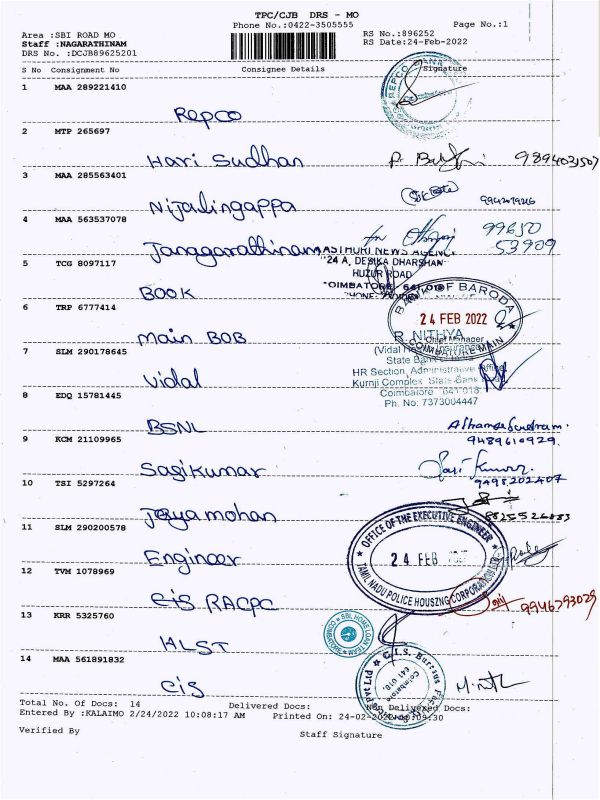 TPC/CJB DRS - MO
Phone No.:0422-3505555
Page No.:1
Area :SBI ROAD MO
RS No.:896252
Staff :NAGARATHINAM
RS Date:24-Feb-2022
DRS No. :DCJB89625201
S No Consignment No Consignee Details Signature
1 MAA 289221410
REPCO BANK
Repco
2 MTP 265697
Hari Sudhan 9894031507
3 MAA 285563401
Nijalingappa
4 MAA 563537078
99650
53909
Janagarathinam
KASTHURI NEWS AGENCY
"24 A, DESIKA DHARSHAN"
HUZUR ROAD
5 TCG 8097117
BOOK
BANK OF BARODA
24 FEB 2022
COIMBATORE MAIN
6 TRP 6777414
Main BOB
R. NITHYA
7 SLM 290178645
State Bank of India
HR Section, Administrative Office
Kurnji Complex State Bank Road
Coimbatore 641 018
Ph. No: 7373004447
Vidal
8 EDQ 15781445
BSNL
9489610929.
9 KCM 21109965
Sagikumar
10 TSI 5297264
Jeyamohan
11 SLM 290200578
OFFICE OF THE EXECUTIVE ENGINEER
24 FEB
TAMIL NADU POLICE HOUSING CORPORATION LTD
Engineer
12 TVM 1078969
CIS RACPC
9946793029
13 KRR 5325760
SBI, HOME LOAN TEAM
COIMBATORE
HLST
14 MAA 561891832
C.I.S. Bureaus
Pvt Ltd
Coimbatore
641 018.
CIS
Total No. Of Docs: 14 Delivered Docs: Non Delivered Docs:
Entered By :KALAIMO 2/24/2022 10:08:17 AM Printed On: 24-02-2022 10:09:30
Verified By Staff Signature